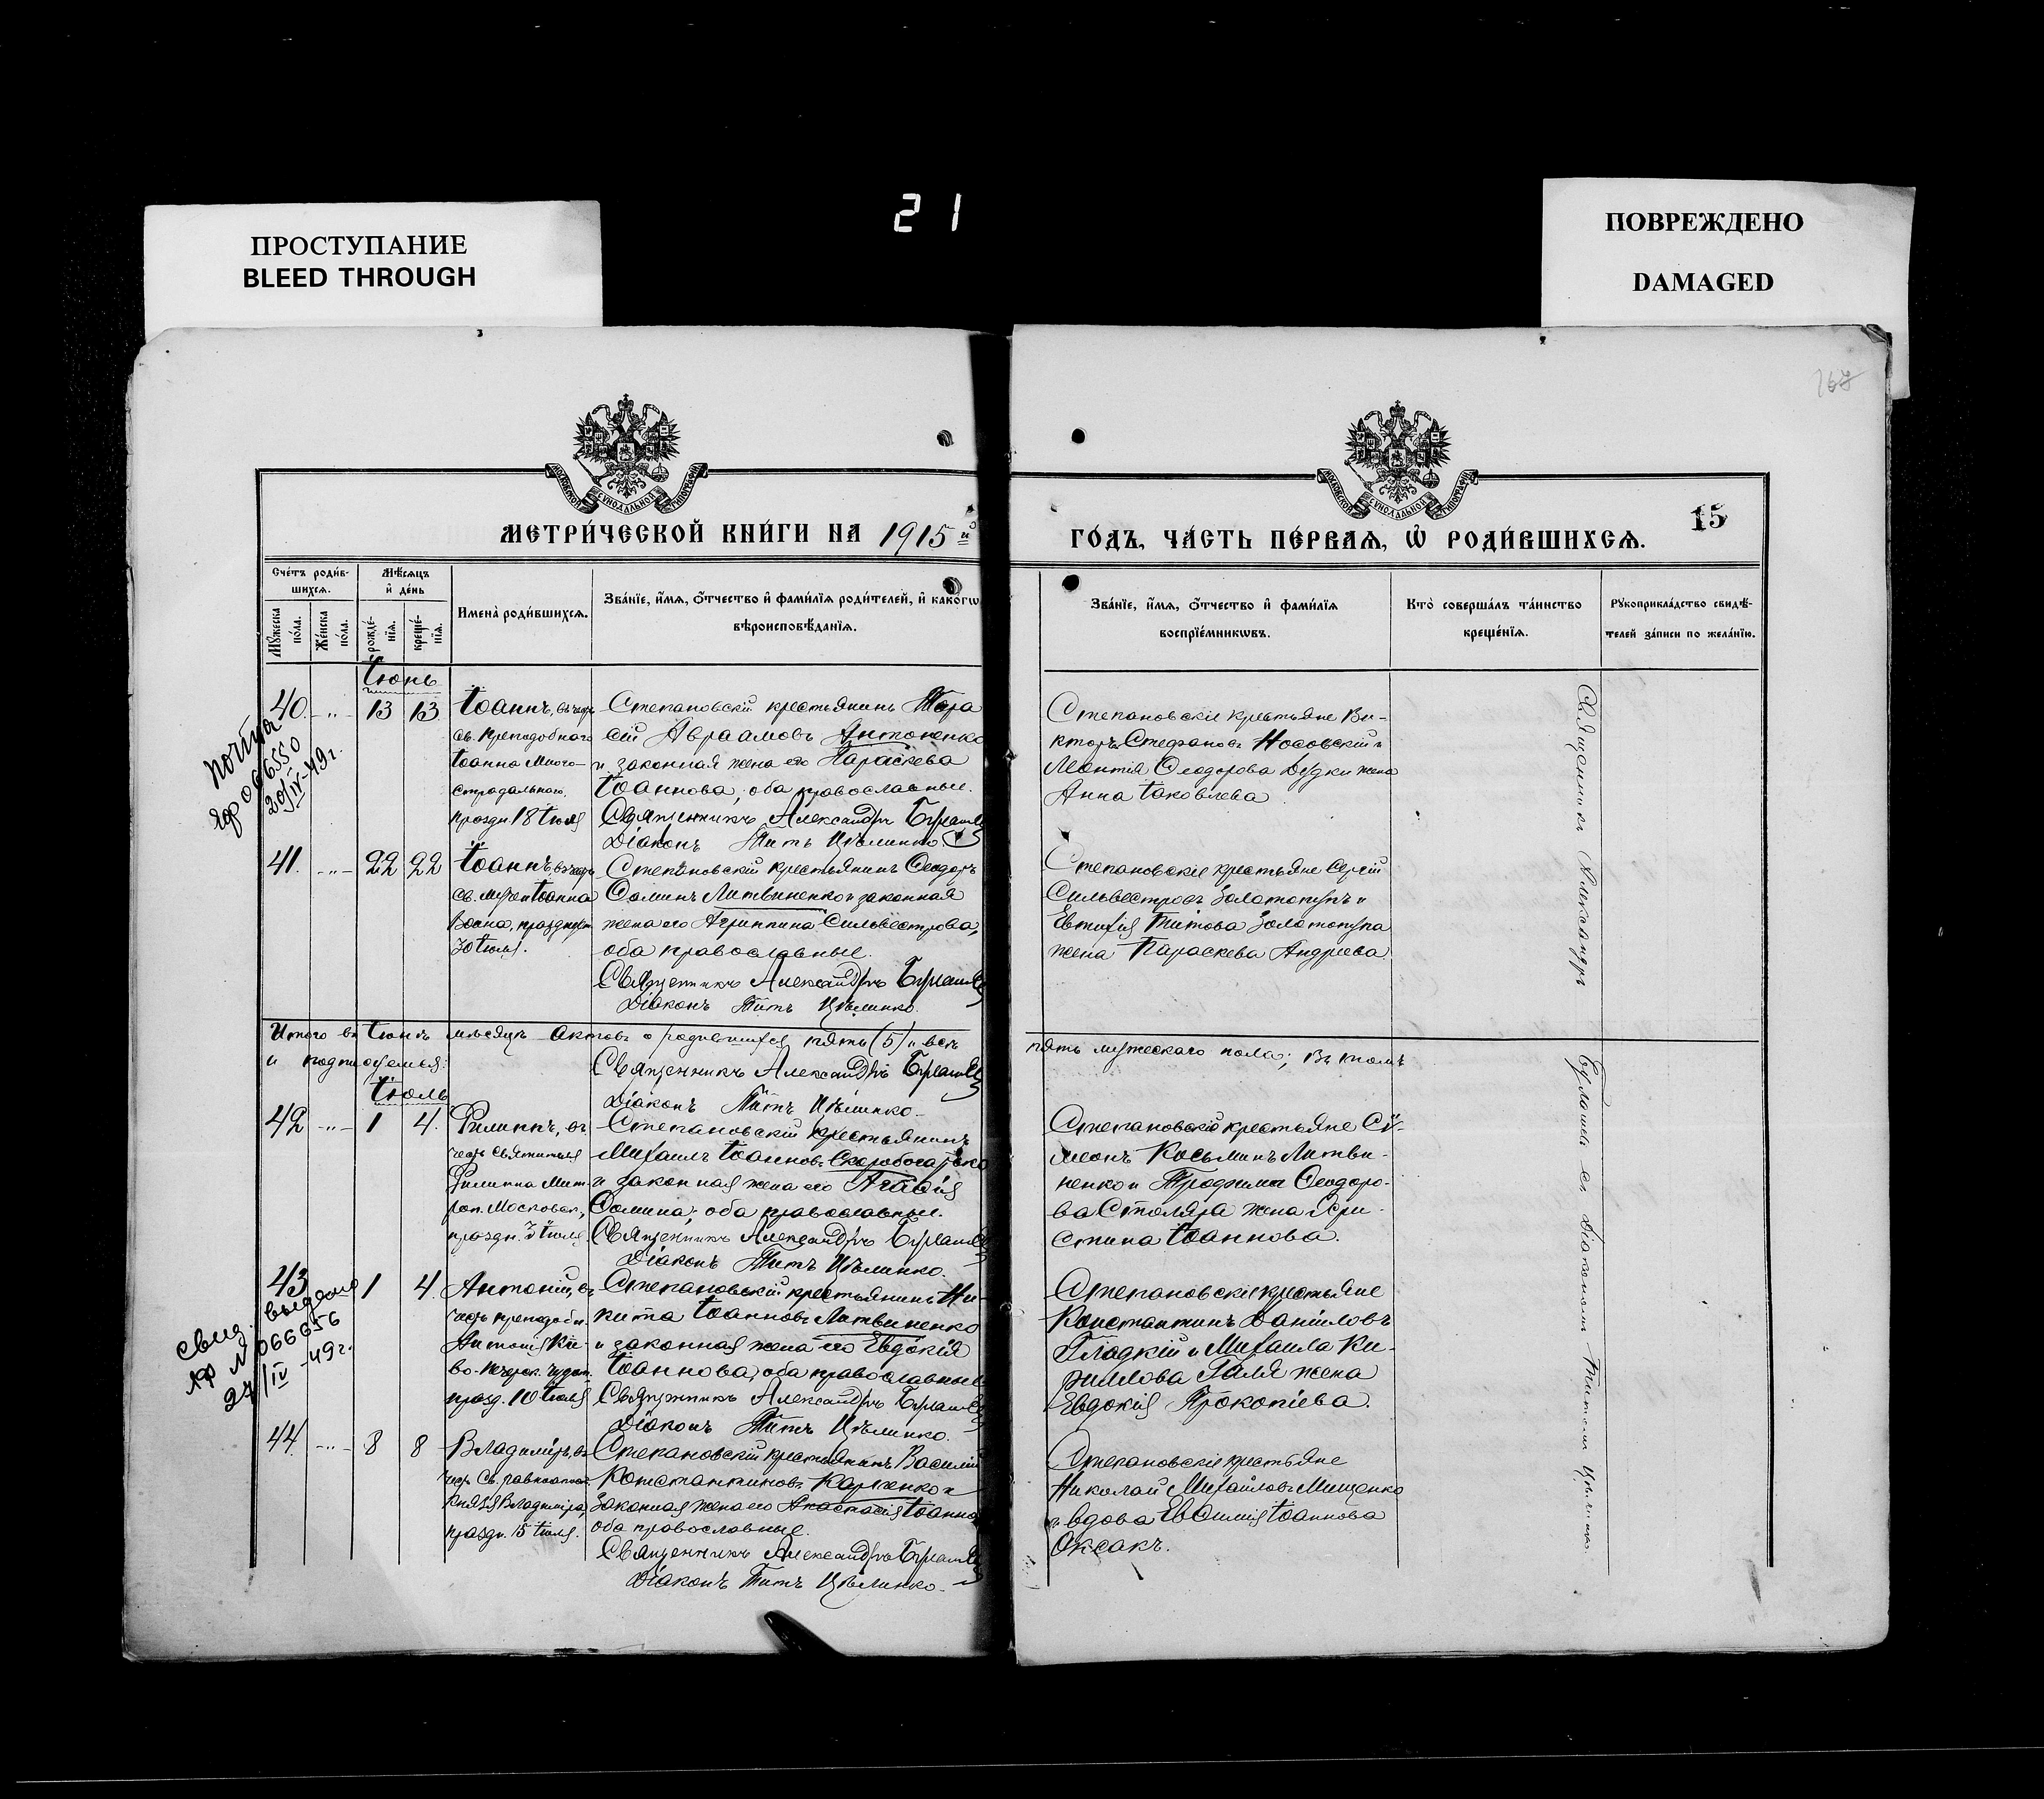 21
ПРОСТУПАНИЕ
BLEED THROUGH
ПОВРЕЖДЕНО
DAMAGED
МЕТРИ́ЧЕСКОЙ КНИ́ГИ НА 1915 й
ГО́ДЪ, ЧА́СТЬ ПЕ́РВАѦ, Ѡ҆ РОДИ́ВШИХСѦ.
15
Сче́тъ роди́в-
шихсѧ.
Мѣ́сѧцъ
и҆ де́нь
Мꙋ́жеска
по́ла.
Же́нска
по́ла.
рожде́-
нїѧ.
креще́-
нїѧ.
Имена̀ роди́вшихсѧ.
Зва́нїе, и҆́мѧ, ѻ҆́тчество и҆ фами́лїѧ роди́телей, и҆ како́гѡ
вѣроисповѣ́данїѧ.
Зва́нїе, и҆́мѧ, ѻ҆́тчество и҆ фами́лїѧ
воспрїе́мникѡвъ.
Кто̀ соверша́лъ та́инство
креще́нїѧ.
Рꙋкоприкла́дство свидѣ́-
телей за́писи по жела́нїю.
Іюнь
40. -"- 13 13
Іоаннъ, въ честь
св. Преподобнаго
Іоанна Много-
страдальнаго,
праздн. 18 Іюля
Степановскій крестьянинъ Тара
сій Авраамовъ Антоненко
и законная жена его Параскева
Іоаннова, оба православные.
Священникъ Александръ
Діаконъ Титъ Цѣлинко
Степановскіе крестьяне Ви-
кторъ Стефановъ Носовскій и
Леонтія Ѳеодорова Дудки жена
Анна Іаковлева
почта
ЯФ 066550
20/IV-49г.
41. -"- 22 22
Іоаннъ, въ честь
св. муч. Іоанна
Воина, празднуем.
30 Іюля.
Степановскій крестьянинъ Ѳеодоръ
Ѳоминъ Литвиненко и законная
жена его Агриппина Сильвестрова,
оба православные.
Священникъ Александръ
Діаконъ Титъ Цѣлинко.
Степановскіе крестьяне Сергій
Сильвестровъ Золотопупъ и
Евтихія Титова Золотопупа
жена Параскева Андреева
Итого въ Іюнѣ мѣсяцѣ актовъ о родившихся пять (5) и всѣ
пять мужескаго пола; въ томъ
и подписуемся:
Священникъ Александръ
Діаконъ Титъ Цѣлинко.
Іюль
42 -"- 1 4.
Филиппъ, въ
честь Святителя
Филиппа Мит-
роп. Московск.,
праздн. 3 Іюля.
Степановскій крестьянинъ
Михаилъ Іоанновъ Скоробогатько
и законная жена его Агаѳія
Ѳомина; оба православные.
Священникъ Александръ
Діаконъ Титъ Цѣлинко.
Степановскіе крестьяне Сѵ-
меонъ Косьминъ Литви-
ненко и Трофима Ѳеодоро-
ва Столяра жена Хри-
стина Іоаннова.
43 1 4.
Антоній, въ
честь преподобн.
Антонія Кіе-
во-Печерск. чудот.
празд. 10 Іюля
Степановскій крестьянинъ Ни-
кита Іоанновъ Литвиненко
и законная жена его Евдокія
Іоаннова, оба православные
Священникъ Александръ
Діаконъ Титъ Цѣлинко.
Степановскіе крестьяне
Константинъ Даніиловъ
Гладкій и Михаила Ки-
риллова Галя жена
Евдокія Прокопіева.
свид. выдано
ЯФ № 066656
27/IV-49г.
44. -"- 8 8
Владиміръ, въ
честь Св. равноапост.
Князя Владиміра,
праздн. 15 Іюля.
Степановскій крестьянинъ Василій
Константиновъ Карпенко и
законная жена его Анастасія Іоанно
оба православные.
Священникъ Александръ
Діаконъ Титъ Цѣлинко.
Степановскіе крестьяне
Николай Михайловъ Мищенко
и вдова Евѳимія Іоаннова
Оксакъ.
Священникъ Александръ
съ Діакономъ Титомъ Цѣлинко.